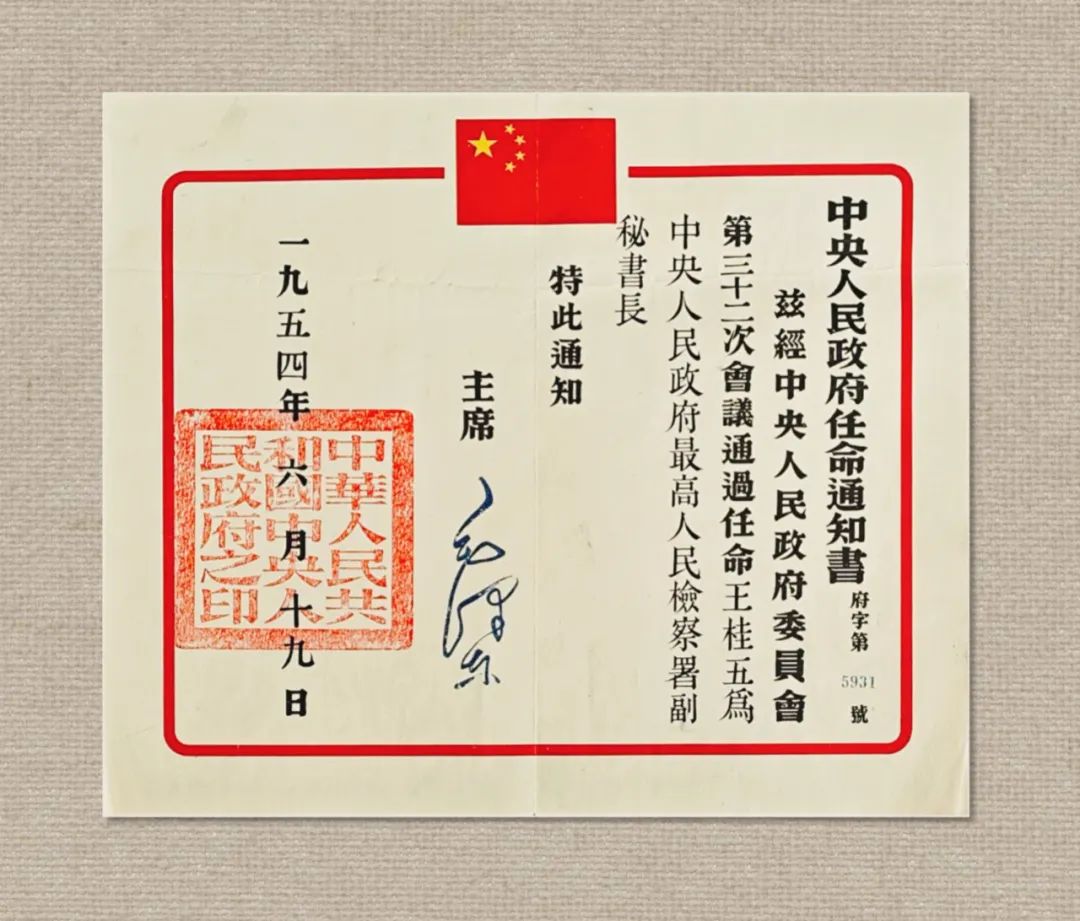 中央人民政府任命通知書
府字第 5931 號
茲經中央人民政府委員會
第三十二次會議通過任命王桂五爲
中央人民政府最高人民檢察署副
秘書長
特此通知
主席
毛澤东
一九五四年六月十九日
中華人民共
和國中央人
民政府之印